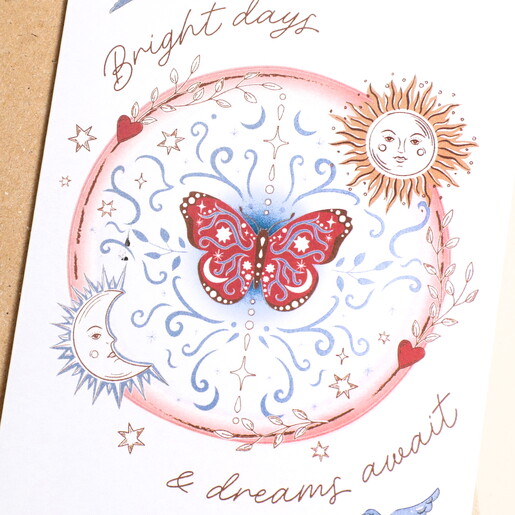 Bright days
& dreams await